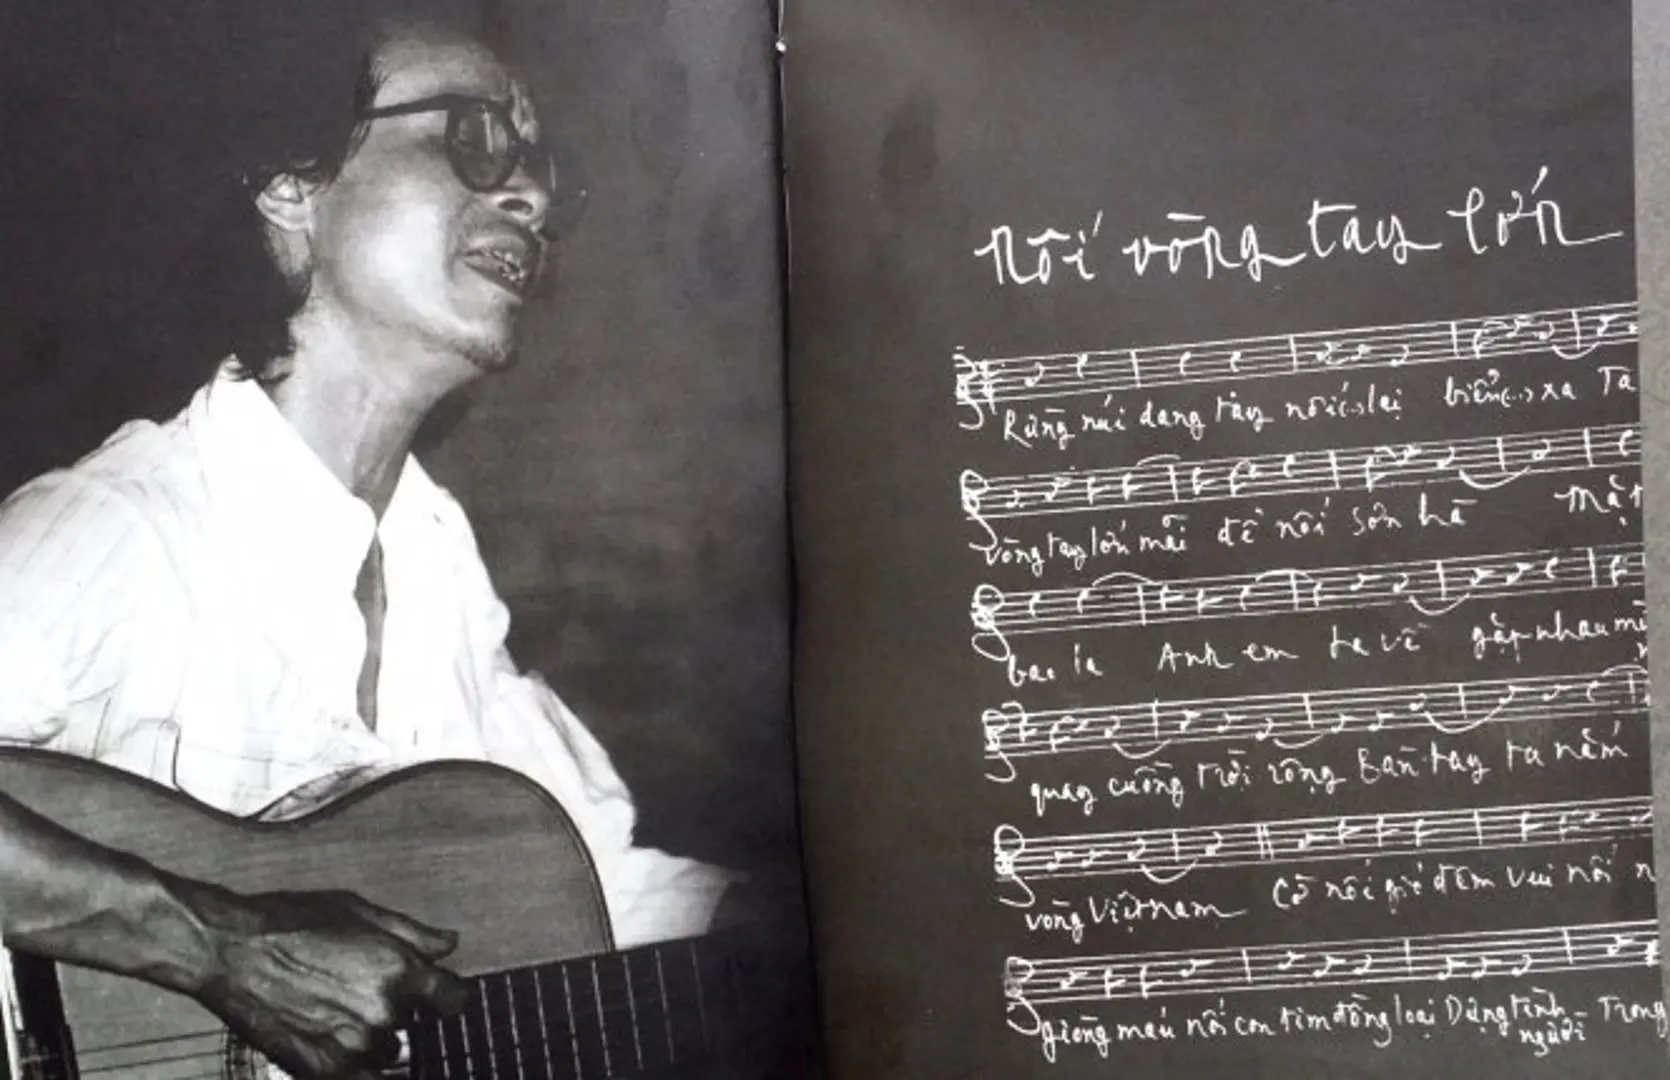 Nối vòng tay lớn
Rừng núi dang tay nối(..)lại biển(..) xa Ta
vòng tay lớn mãi để nối sơn hà Mặt
bao la Anh em ta về gặp nhau
quay cuồng trời rộng Bàn tay ta nắm
vòng Việt nam Cờ nối gió đêm vui nối n
giòng máu nối con tim đồng loại Dựng tình Trong
người